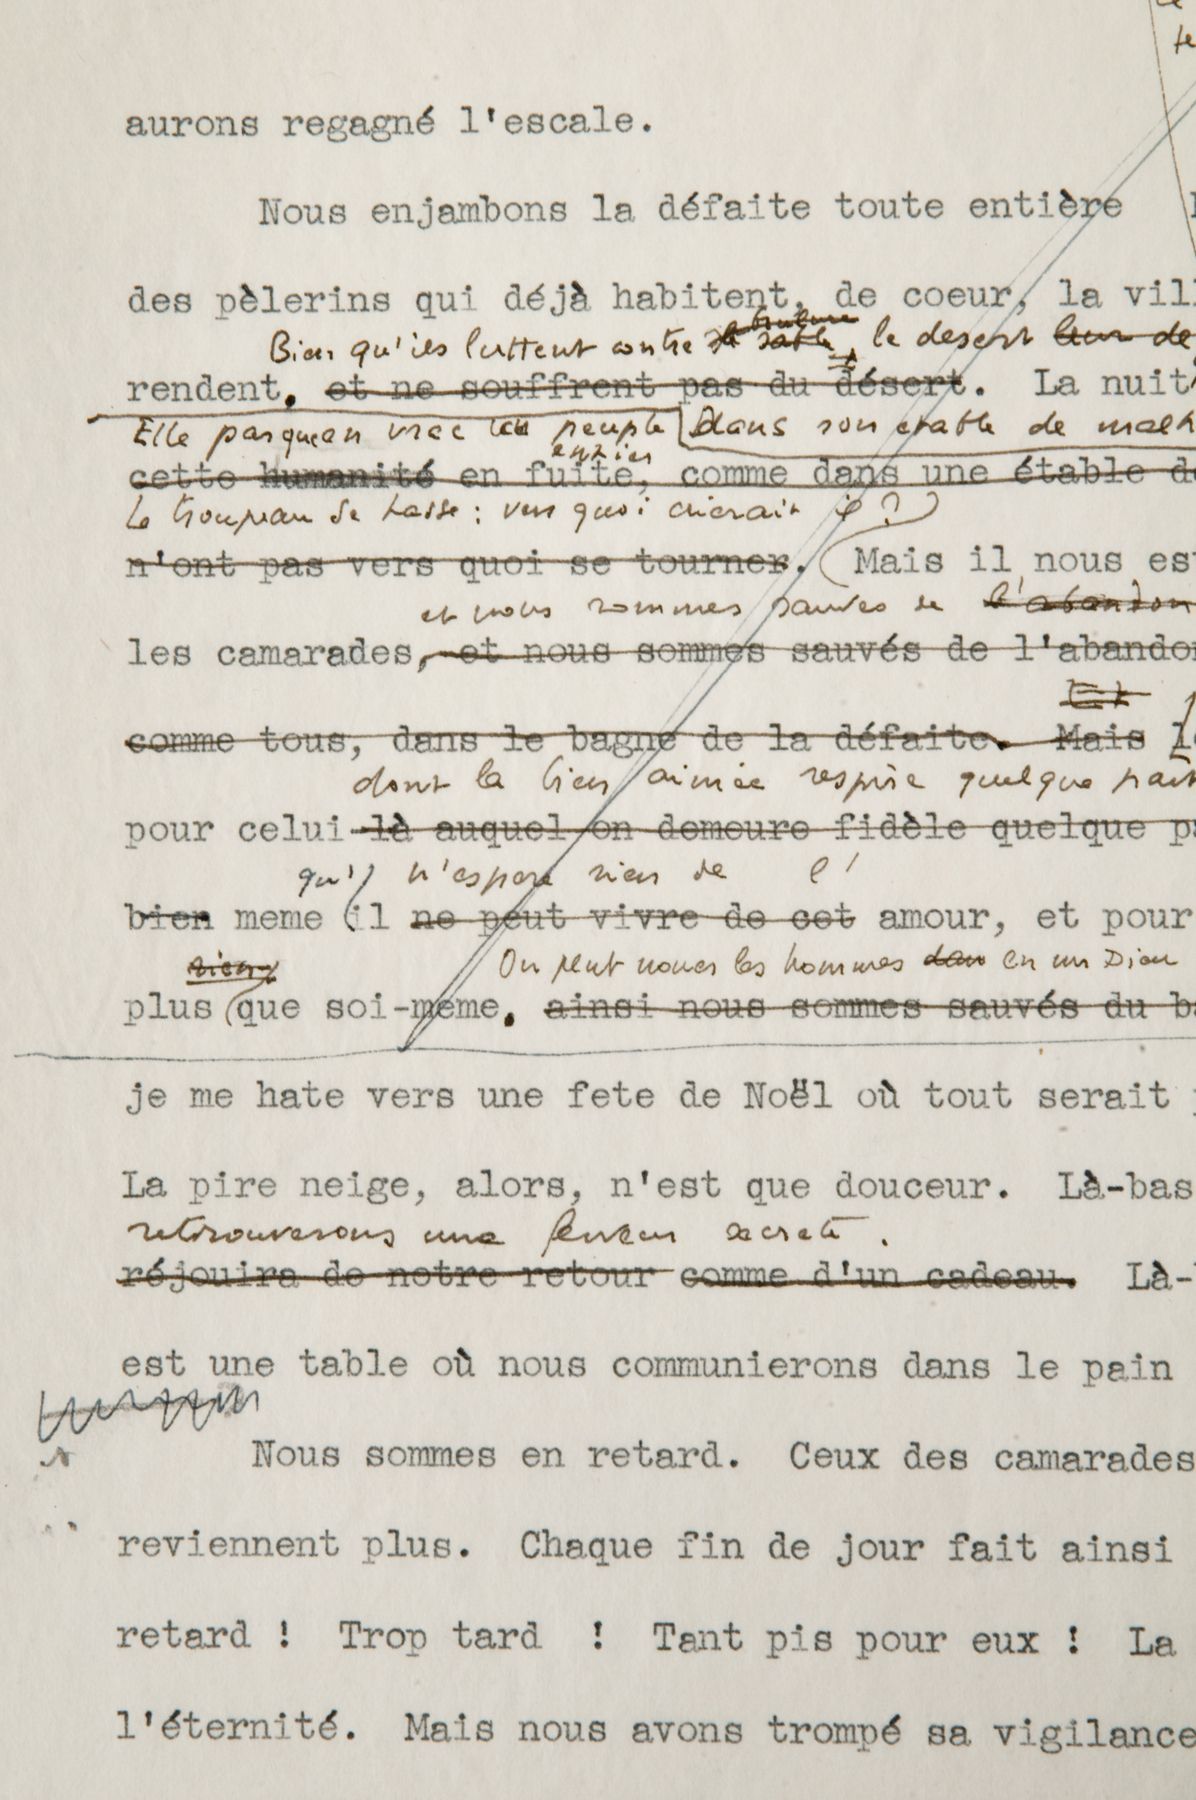 aurons regagné l'escale.
Nous enjambons la défaite toute entière
des pèlerins qui déjà habitent, de coeur, la vil
Bien qu'ils luttent contre brulure sable le desert
rendent. et ne souffrent pas du désert. La nuit
Elle parque en vrac un peuple dans son etable de
entier
cette humanité en fuite, comme dans une étable d
le troupeau se tasse : vers quoi crierait il ?
n'ont pas vers quoi se tourner. Mais il nous es
et nous sommes sauvés de l'abandon
les camarades, et nous sommes sauvés de l'abando
Et
comme tous, dans le bagne de la défaite. Mais
dont la bien aimée respire quelque part
pour celui-là auquel on demeure fidèle quelque p
qu'il n'espere rien de l'
bien meme il ne peut vivre de cet amour, et pour
rien On peut nouer les hommes dans en un Dieu
plus que soi-même. ainsi nous sommes sauvés du b
je me hate vers une fete de Noël où tout serait
La pire neige, alors, n'est que douceur. Là-bas
retrouverons une ferveur secrete.
réjouira de notre retour comme d'un cadeau. Là-
est une table où nous communierons dans le pain
Nous sommes en retard. Ceux des camarades
reviennent plus. Chaque fin de jour fait ainsi
retard ! Trop tard ! Tant pis pour eux ! La
l'éternité. Mais nous avons trompé sa vigilance